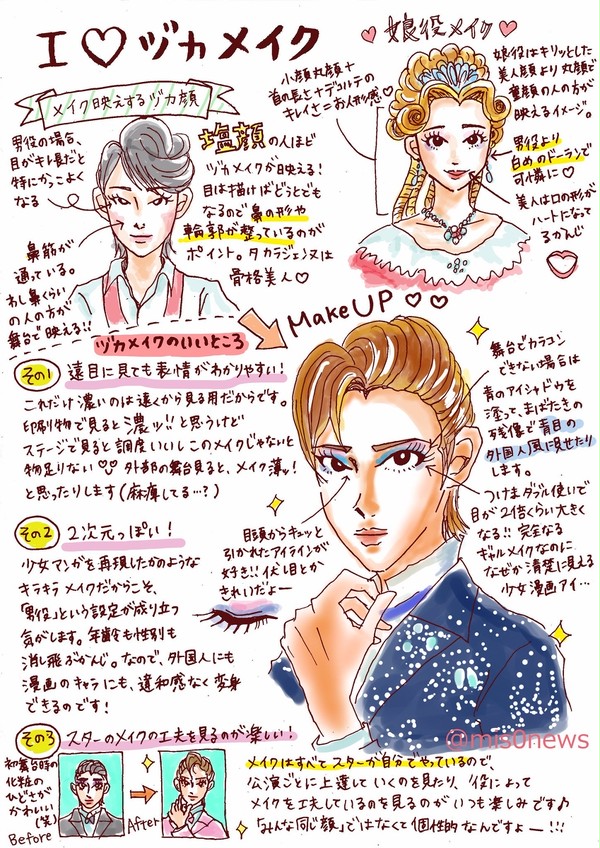 I♡ヅカメイク
メイク映えするヅカ顔
男役の場合、
目がキレ長だと
特にかっこよく
なる
鼻筋が
通っている。
わし鼻くらい
の人の方が
舞台で映える!!
塩顔の人ほど
ヅカメイクが映える!
目は描けばどうとでも
なるので鼻の形や
輪郭が整っているのが
ポイント。タカラジェンヌは
骨格美人♡
娘役メイク
小顔丸顔+
首の長さ+デコルテの
キレイさ=お人形感♡
娘役はキリッとした
美人顔より丸顔で
童顔の人の方が
映えるイメージ。
男役より
白めのドーランで
可憐に♡
美人は口の形が
ハートになって
るかんじ
MakeUP♡♡
ヅカメイクのいいところ
その1 遠目に見ても表情がわかりやすい!
これだけ濃いのは遠くから見る用だからです。
印刷物で見ると濃ッ!!と思うけど
ステージで見ると調度いいしこのメイクじゃないと
物足りない♡♡外部の舞台見ると、メイク薄ッ!
と思ったりします(麻痺してる…?)
舞台でカラコン
できない場合は
青のアイシャドウを
塗って、まばたきの
残像で青目の
外国人風に見せたり
します。
つけまダブル使いで
目が2倍くらい大きく
なる!!完全なる
ギャルメイクなのに
なぜか清楚に見える
少女漫画アイ…
目頭からキュッと
引かれたアイラインが
好き!!伏し目とか
きれいだよー
その2 2次元っぽい!
少女マンガを再現したかのような
キラキラメイクだからこそ、
「男役」という設定が成り立つ
気がします。年齢も性別も
消し飛ぶかんじ。なので、外国人にも
漫画のキャラにも、違和感なく変身
できるのです!
@mis0news
その3 スターのメイクの工夫を見るのが楽しい!
初舞台時の
化粧の
ひどさが
かわいい
(笑)
Before
After
メイクはすべてスターが自分でやっているので、
公演ごとに上達していくのを見たり、役によって
メイクを工夫しているのを見るのがいつも楽しみです♪
「みんな同じ顔」ではなくて個性的なんですよー!!!